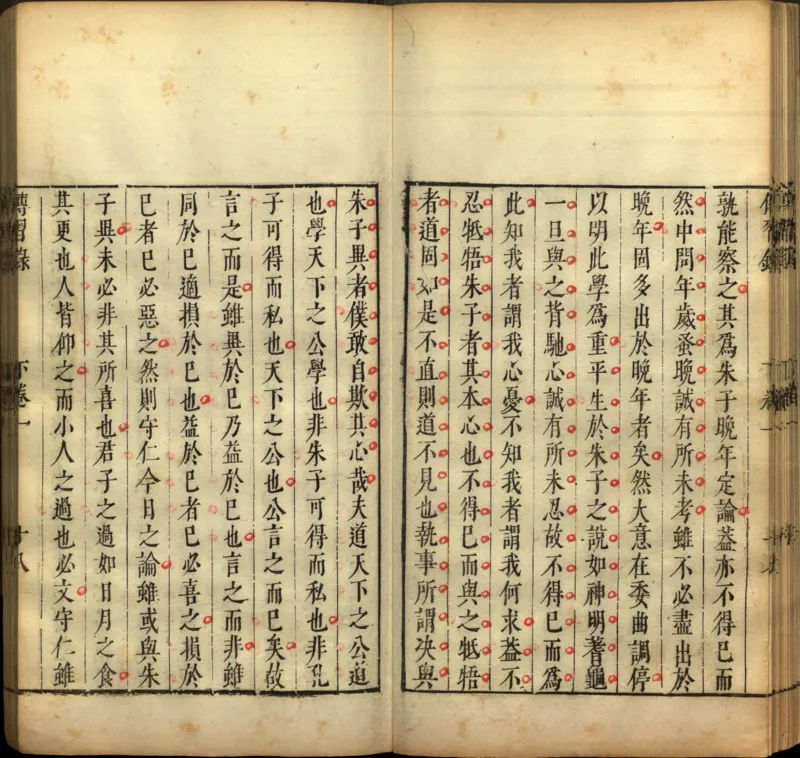 孰能察之其為朱子晚年定論葢亦不得已而
然中間年歲蚤晚誠有所未考雖不必盡出於
晚年固多出於晚年者矣然大意在委曲調停
以明此學爲重平生於朱子之說如神明蓍龜
一旦與之背馳心誠有所未忍故不得已而爲
此知我者謂我心憂不知我者謂我何求葢不
忍牴牾朱子者其本心也不得已而與之牴牾
者道固如是不直則道不見也執事所謂决與
朱子異者僕敢自欺其心哉夫道天下之公道
也學天下之公學也非朱子可得而私也非孔
子可得而私也天下之公也公言之而已矣故
言之而是雖異於已乃益於已也言之而非雖
同於已適損於已也益於已者已必喜之損於
已者已必惡之然則守仁今日之論雖或與朱
子異未必非其所喜也君子之過如日月之食
其更也人皆仰之而小人之過也必文守仁雖
傳習錄
下卷一
十八